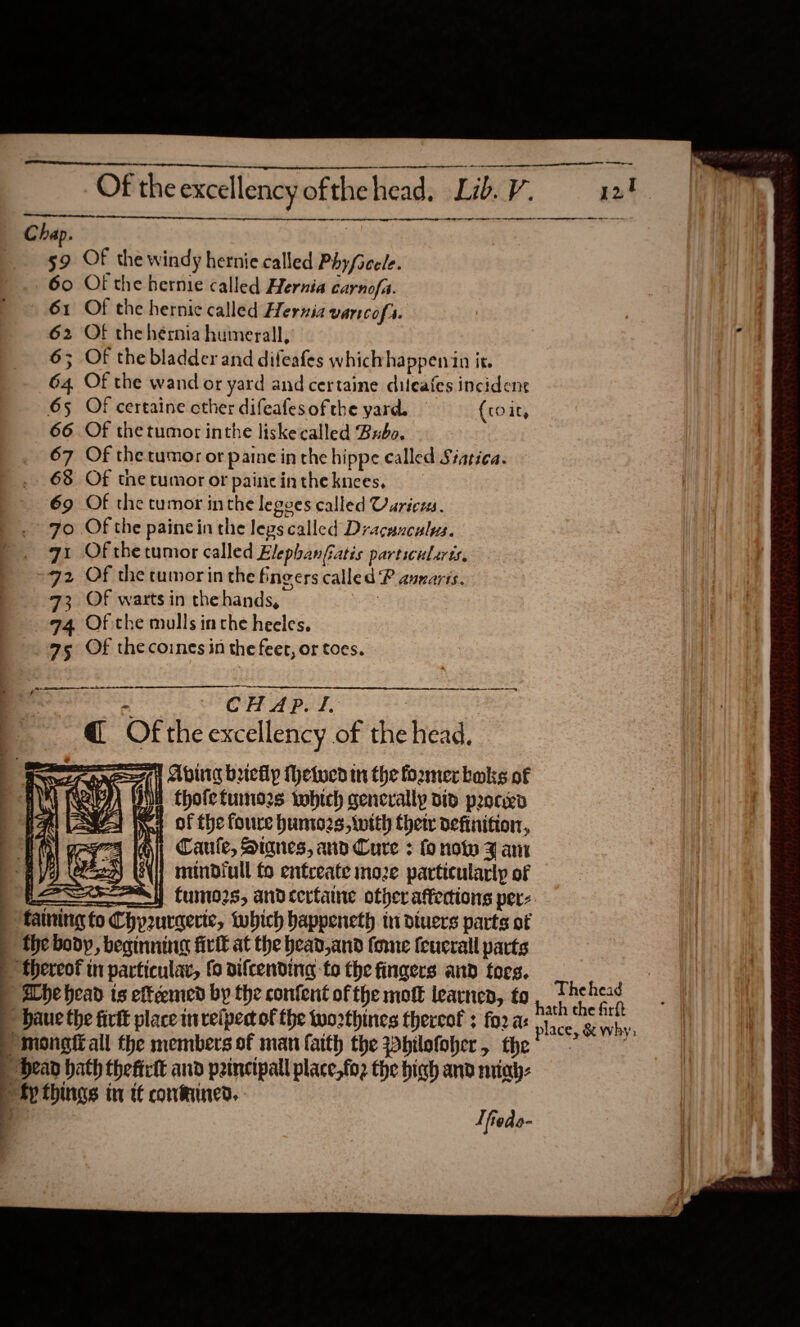 Of the excellency of the head. Lib. V. 121
Chap.
59 Of the windy hernie called Phyſocele.
60 Of the hernie called Hernia carnoſa.
61 Of the hernie called Hernia varicoſa.
62 Of the hernia humerall.
63 Of the bladder and diſeaſes which happen in it.
64 Of the wand or yard and certaine diſeaſes incident
65 Of certaine other diſeaſes of the yard. (to it.
66 Of the tumor in the liske called Bubo.
67 Of the tumor or paine in the hippe called Siatica.
68 Of the tumor or paine in the knees.
69 Of the tumor in the legges called Varicus.
70 Of the paine in the legs called Dracunculus.
71 Of the tumor called Elephanſiatis particularis.
72 Of the tumor in the fingers called Pannaris.
73 Of warts in the hands.
74 Of the mulls in the heeles.
75 Of the cornes in the feet, or toes.
CHAP. I.
☾ Of the excellency of the head.
Hauing brieflp ſhewed in the former bookes of
thoſe tumors which generally did proceed
of the foure humors, with their definition,
Cauſe, Signes, and Cure : ſo now I am
mindfull to entreate more particularly of
tumors, and certaine other affections per-
taining to Chyrurgerie, which happeneth in diuers parts of
the body, beginning firſt at the head, and ſome ſeuerall parts
thereof in particular, ſo diſcending to the fingers and toes.
The head is eſteemed by the conſent of the moſt learned, to
haue the firſt place in reſpect of the worthines thereof : for a-
mongſt all the members of man ſaith the Philoſopher, the
head hath the firſt and principall place, for the high and migh-
ty things in it contained.
The head
hath the firſt
place, & why.
Iſiodo-